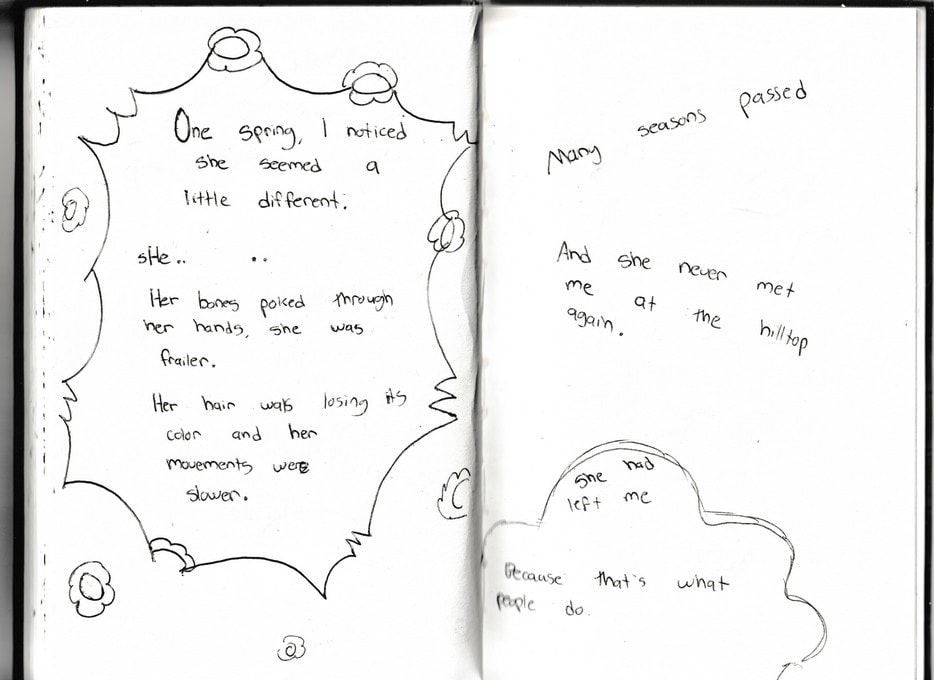 One spring, I noticed
she seemed a
little different.
sHe.. ..
Her bones poked through
her hands, she was
frailer.
Her hair was losing its
color and her
movements were
slower.
Many seasons passed
And she never met
me at the hilltop
again.
she had
left me
Because that's what
people do.